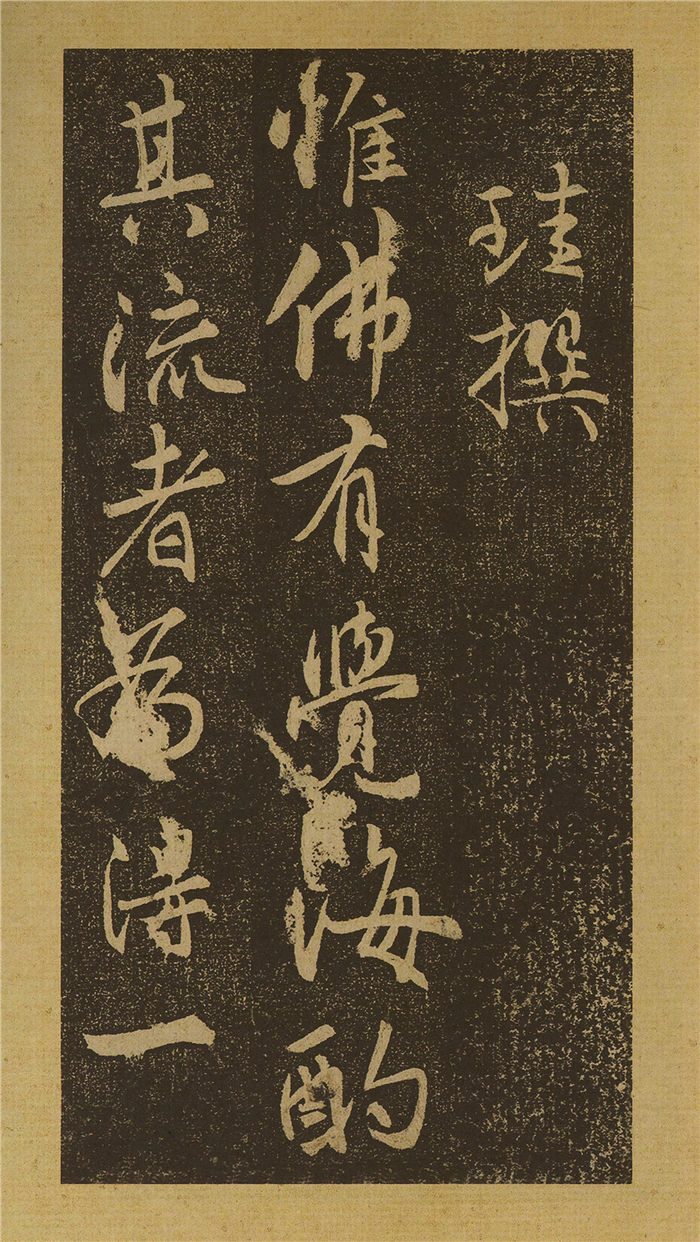 珪撰
惟佛有覺海酌
其流者為得一